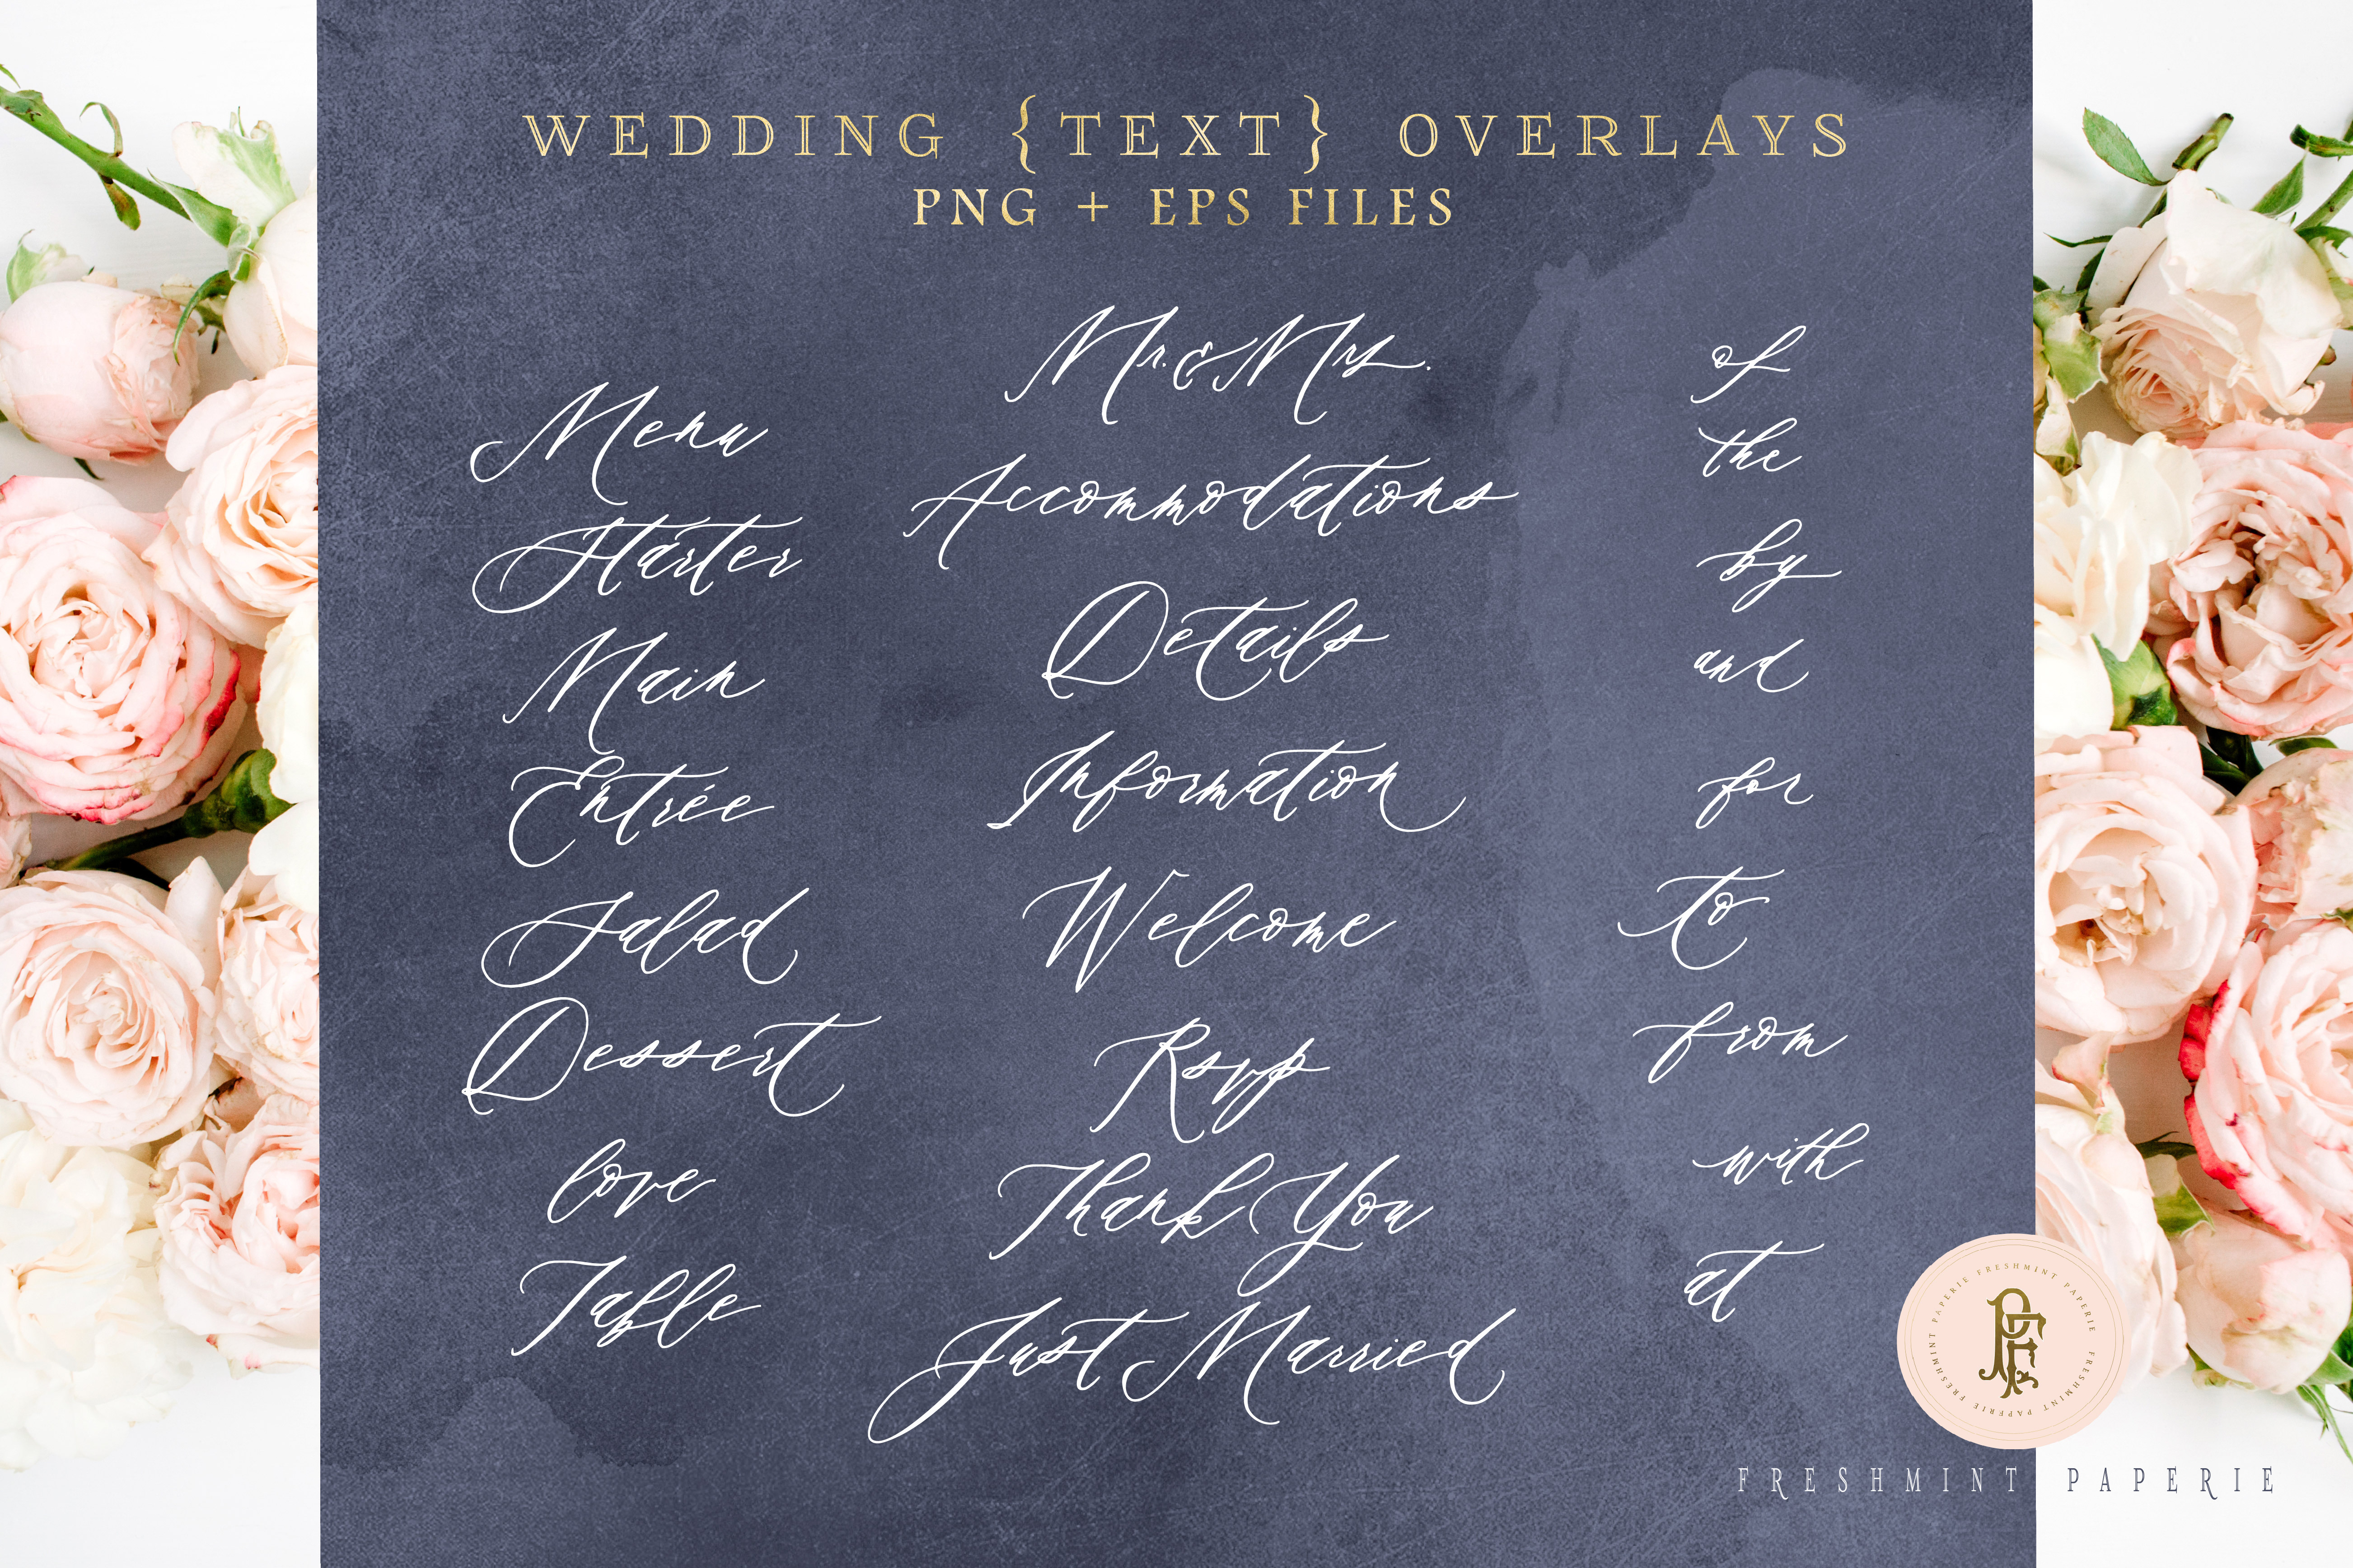 WEDDING {TEXT} OVERLAYS
PNG + EPS FILES
Menu
Starter
Main
Entrée
Salad
Dessert
love
Table
Mr. & Mrs.
Accommodations
Details
Information
Welcome
Rsvp
Thank You
Just Married
of
the
by
and
for
to
from
with
at
FRESHMINT PAPERIE FRESHMINT PAPERIE FRESHMINT PAPERIE
PF
FRESHMINT PAPERIE